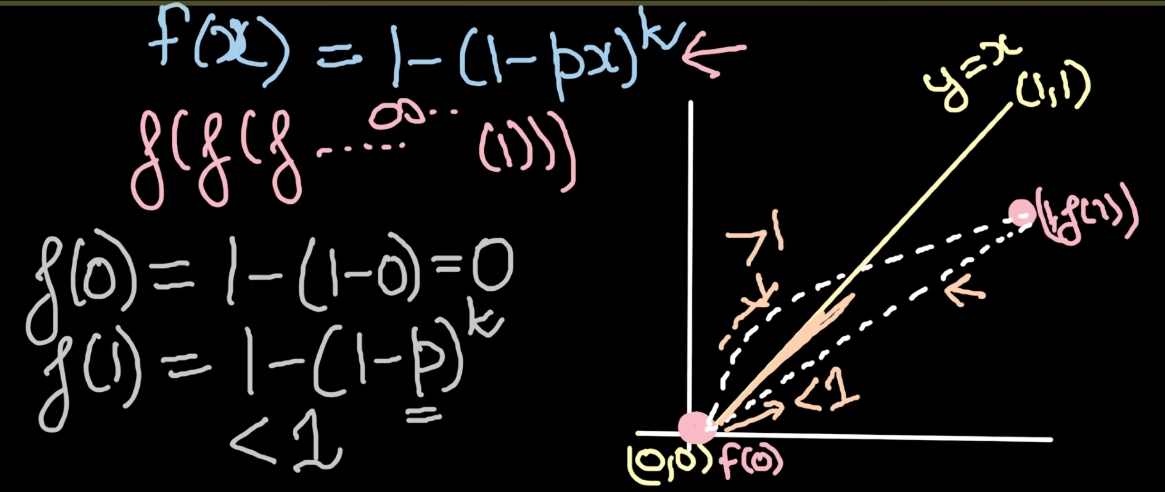 f(x) = 1-(1-px)^k ←
f(f(f ...... ∞... (1)))
f(0) = 1-(1-0) = 0
f(1) = 1-(1-p)^k
<1
y=x
(1,1)
(1,f(1))
>1
<1
(0,0) f(0)